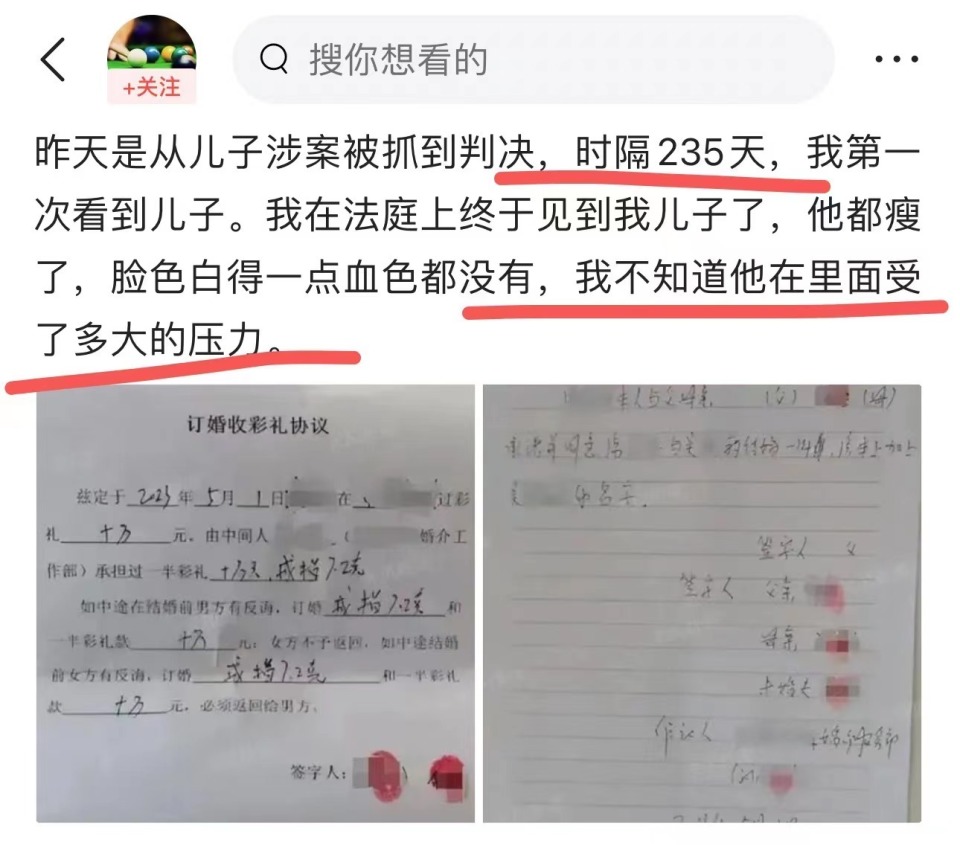 +关注
搜你想看的
昨天是从儿子涉案被抓到判决，时隔235天，我第一
次看到儿子。我在法庭上终于见到我儿子了，他都瘦
了，脸色白得一点血色都没有，我不知道他在里面受
了多大的压力。
订婚收彩礼协议
兹定于2023年5月1日 在 订彩
礼十万元，由中间人 （ 婚介工
作部）承担过一半彩礼十万元，戒指7.2克
如中途在结婚前男方有反悔，订婚戒指7.2克和
一半彩礼款十万元；女方不予返回，如中途结婚
前女方有反悔，订婚戒指7.2克和一半彩礼
款十万元，必须返回给男方。
签字人：
本人与父母亲 （父） （母）
加上
的名字。
签字人 父
签字人 父亲
母亲
未婚夫
作证人